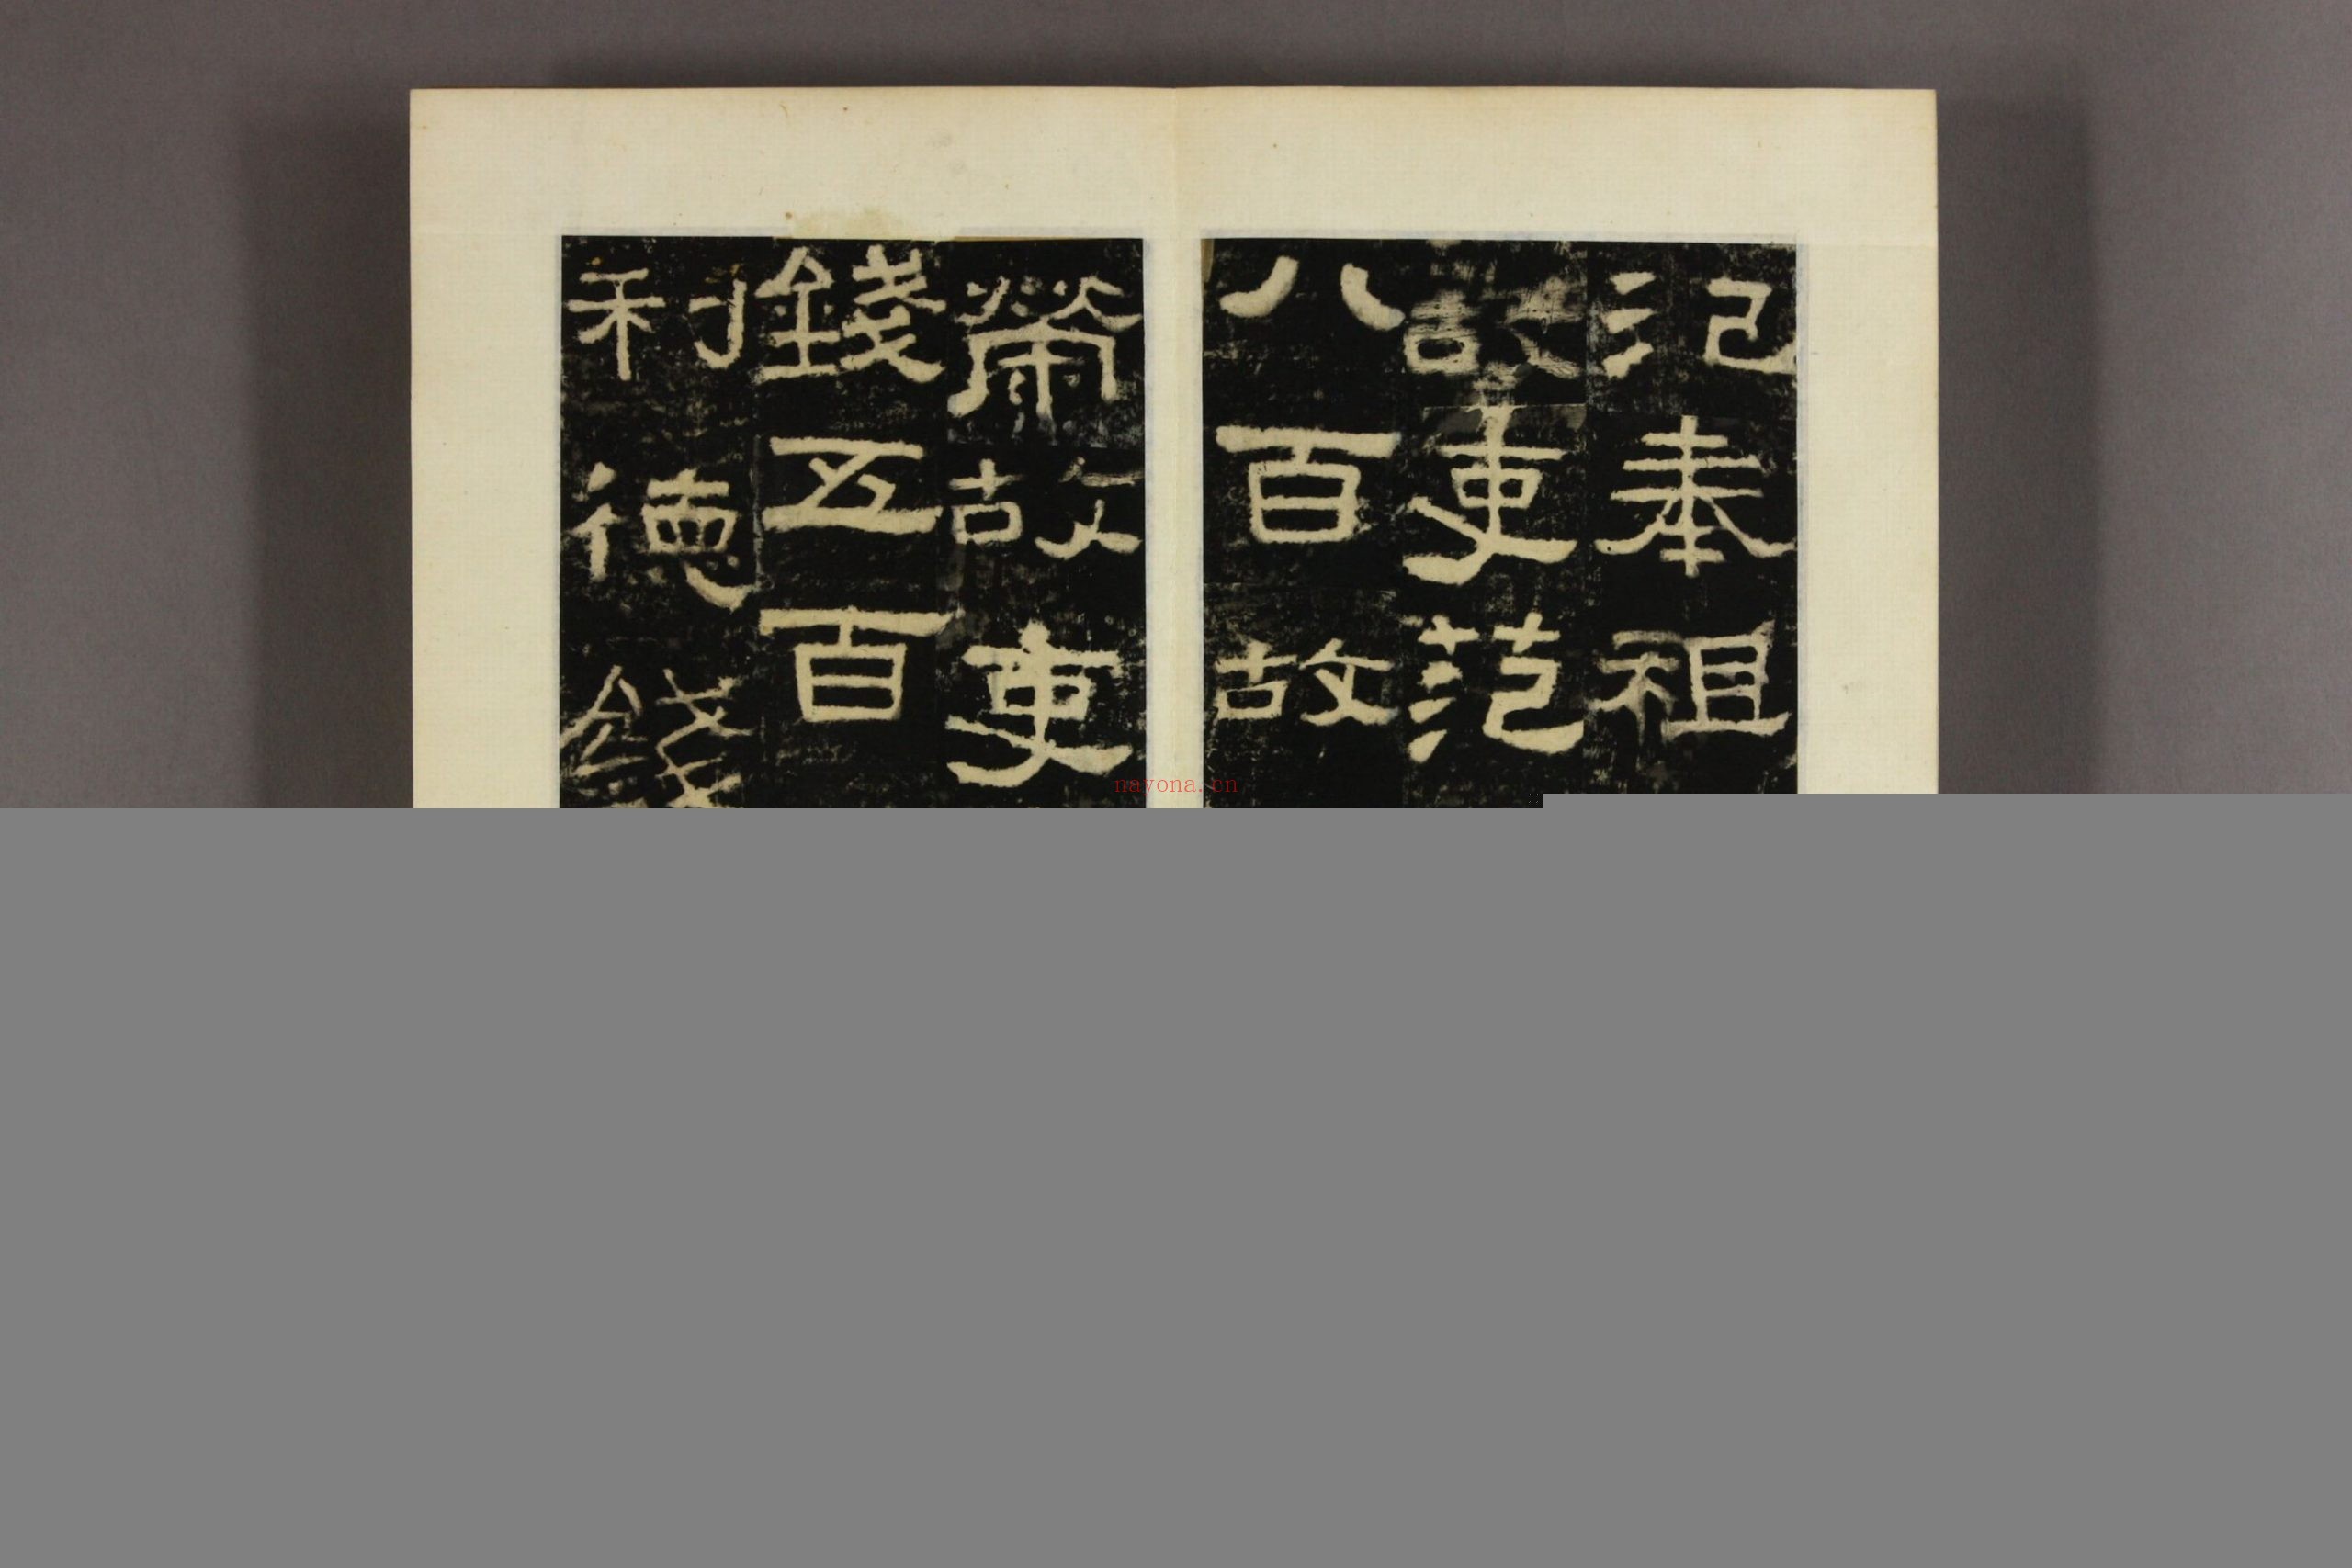 氾奉祖
故吏范
八百故
榮故吏
錢五百
利德錢
nayona.cn